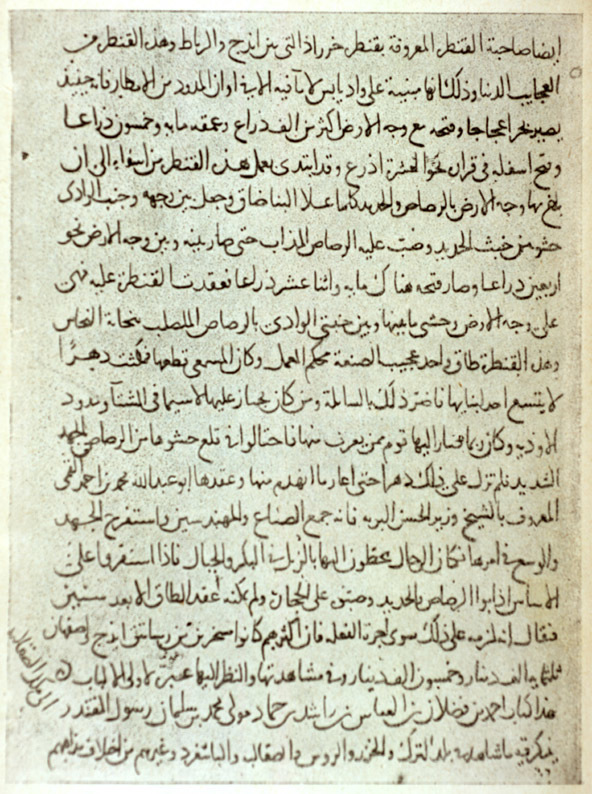 ايضا صاحبة القنطر المعروفة بقنطر خرراذ التى بين ايذج والرباط وهذه القنطر من
عجايب الدنيا وذلك انها مبنية على واد يابس لا ماء فيه الا فى اوان المدود من الامطار فانه حينيذ
يصير بحرا عجاجا وفتحه مع وجه الارض اكثر من الف ذراع وعمقه مايه وخمسون ذراعا
وفتح اسفله فى قراره نحو العشرة اذرع وقد ابتدى بعمل هذه القنطر من اسفله الى ان
بلغ بها وجه الارض بالرصاص والحديد كلما علا البنا ضاق وجعل بين وجهه وجنب الوادى
حشو من خبث الحديد وصب عليه الرصاص المذاب حتى صار بينه وبين وجه الارض نحو
اربعين ذراعا وصار فتحه هناك مايه واثنا عشر ذراعا فعقدت القنطرة عليه فهى
على وجه الارض وحشى ما بينها وبين جنبتى الوادى بالرصاص المصلب بنحاتة النحاس
وهذه القنطرة طاق واحد عجيب الصنعة محكم العمل وكان المسمعى قطعها فمكثت دهرًا
لا يتسع احد لبنايها فاضر ذلك بالسابلة ومن كان يجتاز عليها لا سيما فى الشتآ ومدود
الاوديه وكان ربما صار اليها قوم ممن يعرف منها فاحتالوا فى قلع حشوها من الرصاص بالجهد
الشديد فلم تزل على ذلك دهرا حتى اعاد ما انهدم منها وعقدها ابو عبد الله محمد بن احمد القمى
المعروف بالشيخ وزير الحسن البويه فانه جمع الصناع والمهندسين واستفرغ الجهد
والوسع فى امرها فكان الرجال يحطون اليها بالزبل فى البكر والحبال فاذا استقروا على
الاساس اذابوا الرصاص والحديد وصبوه على الحجارة ولم يمكنه عقد الطاق الا بعد سنين
فيقال انه لزمه على ذلك سوى اجرة الفعله فان اكثرهم كانوا مسخرين من رساتيق ايذج واصفهان
ثلثمايه الف دينار وخمسون الف دينار وفى مشاهدتها والنظر اليها عبرة لاولى الالباب
هذا كتاب احمد بن فضلان بن العباس بن راشد بن حماد مولى محمد بن سلمان رسول المقتدر
يذكر فيه ما شاهد فى بلد الترك والخزر والروس والصقالبه والباشغرد وغيرهم من اختلاف مذاهبهم
الى ملك الصقالبه